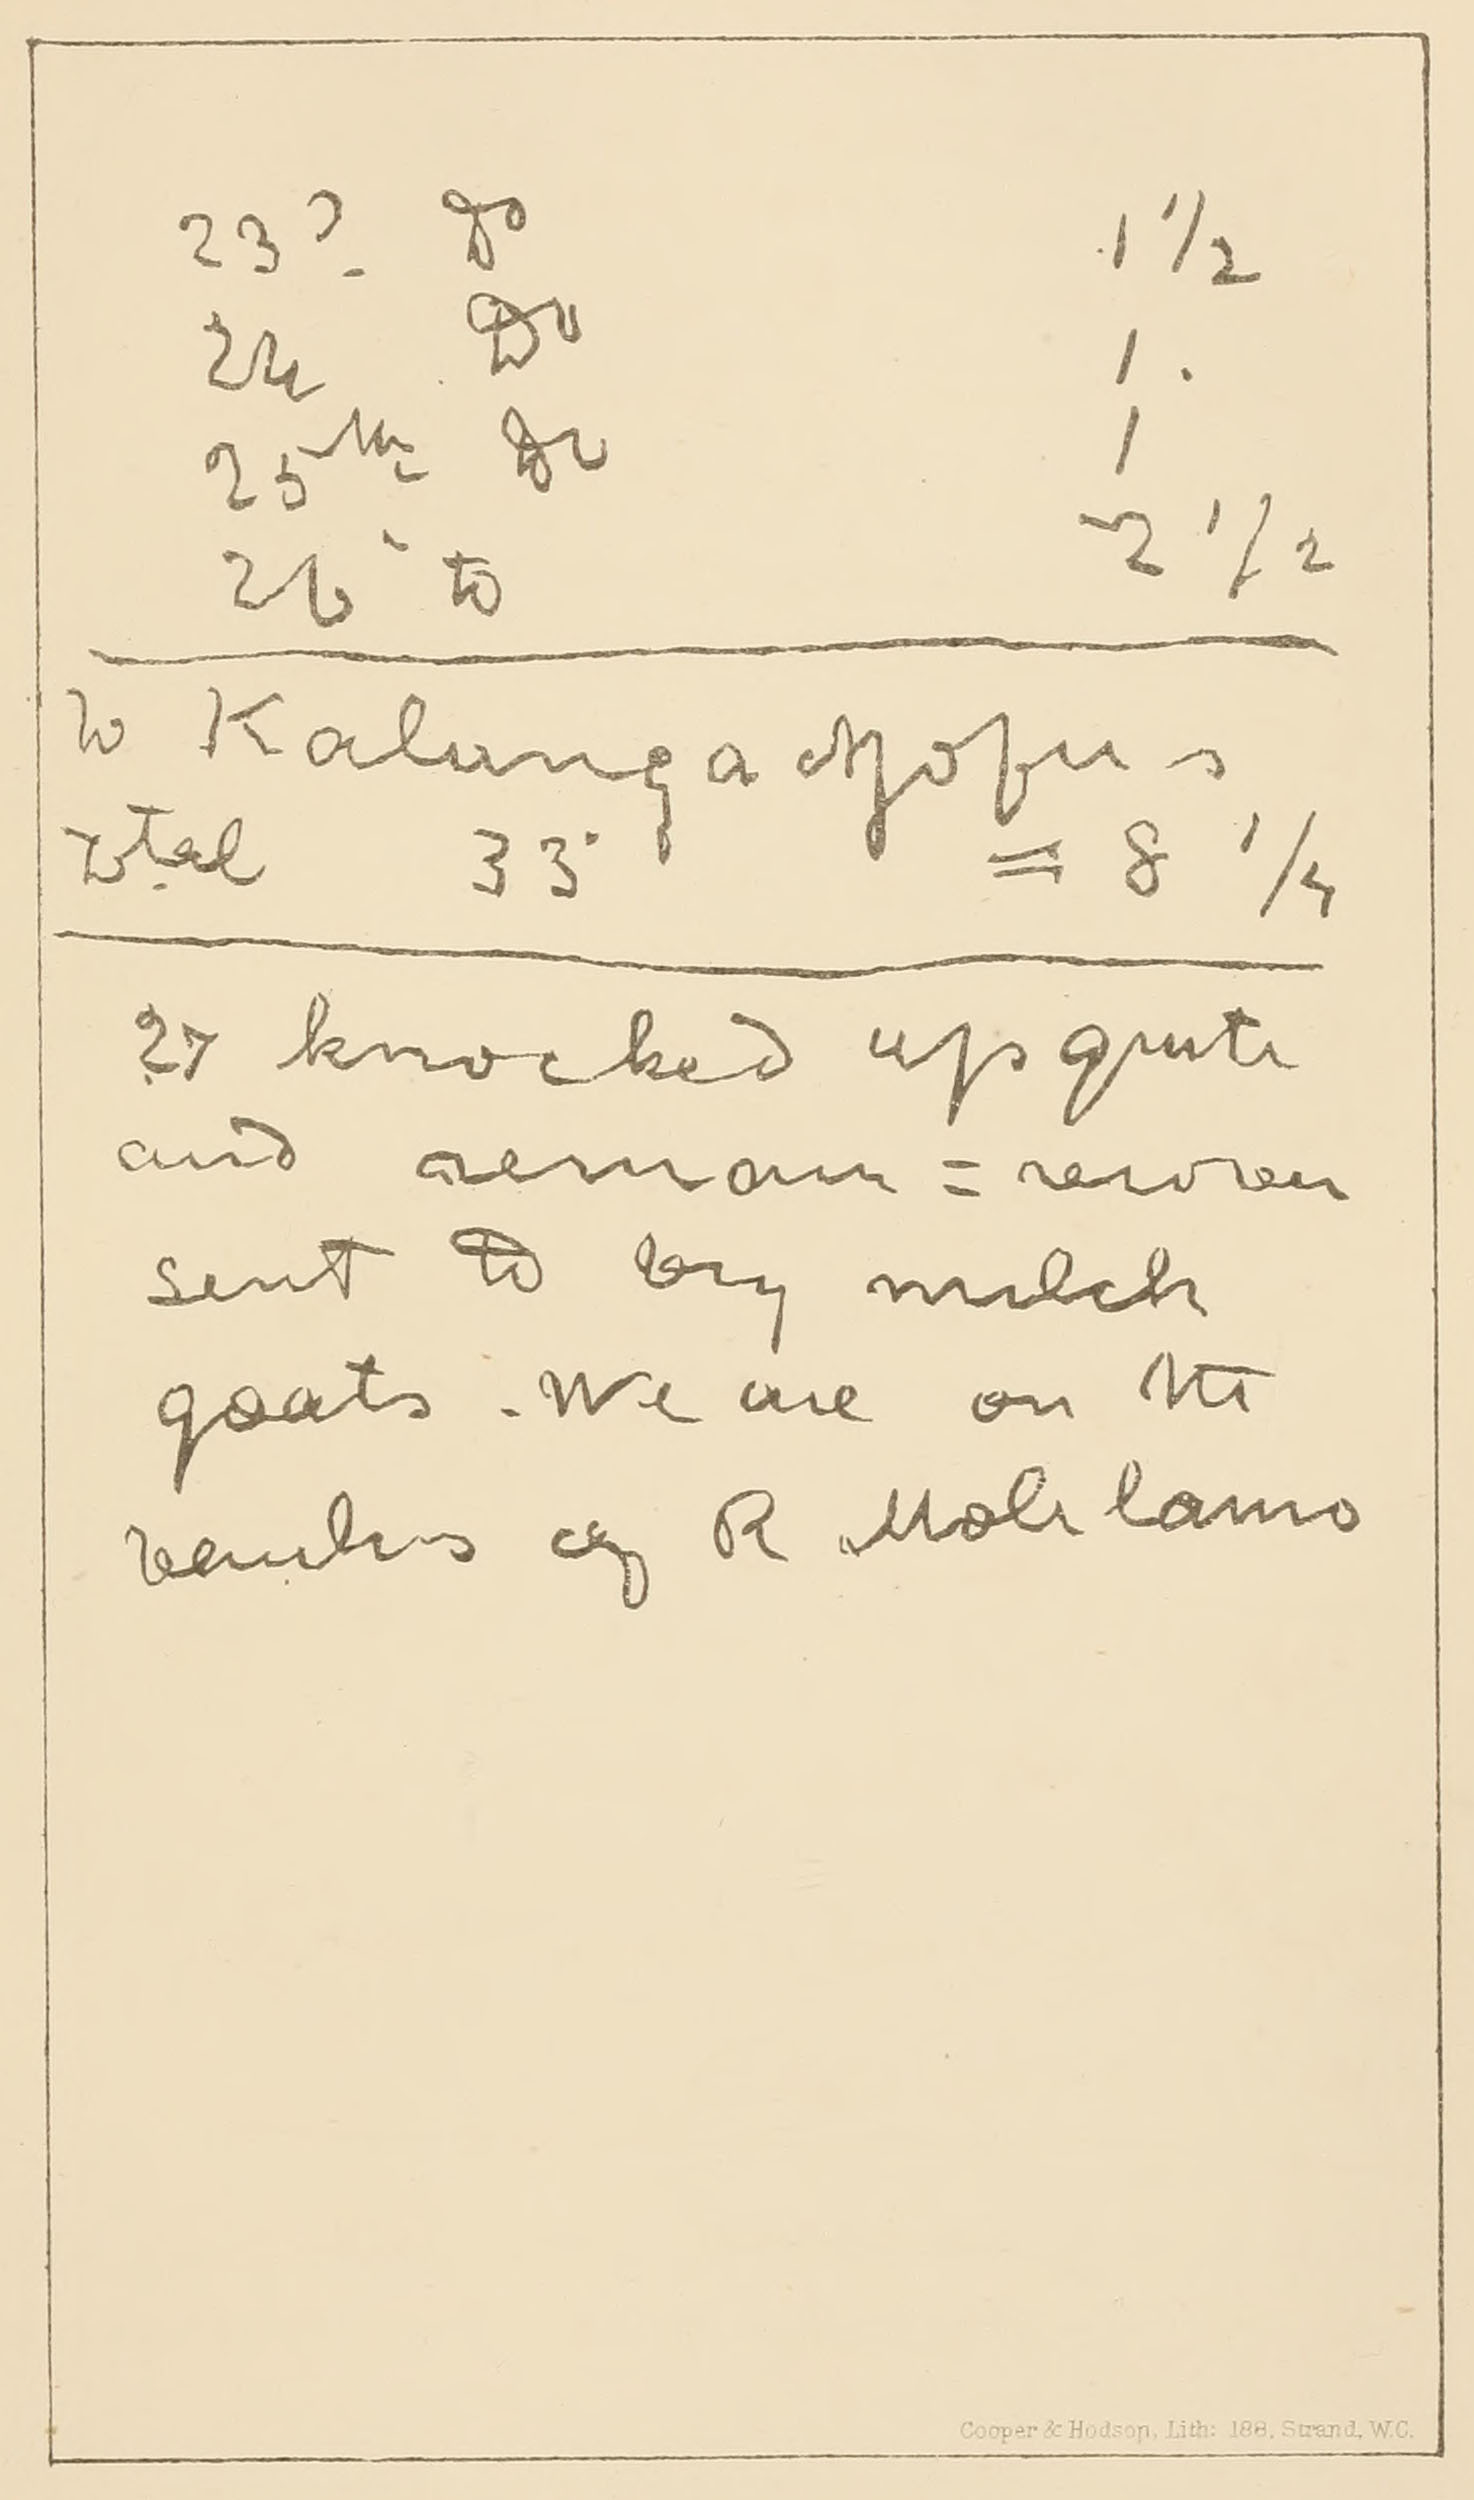 23d. do 1 1/2
24 Do 1.
25th do 1
26 to 2 1/2
to Kalunganjofus
total 33 = 8 1/4
27 knocked up quite
and remain = recover
sent to buy milch
goats. We are on the
banks of R Molilamo
Cooper & Hodson, Lith: 188, Strand, W.C.